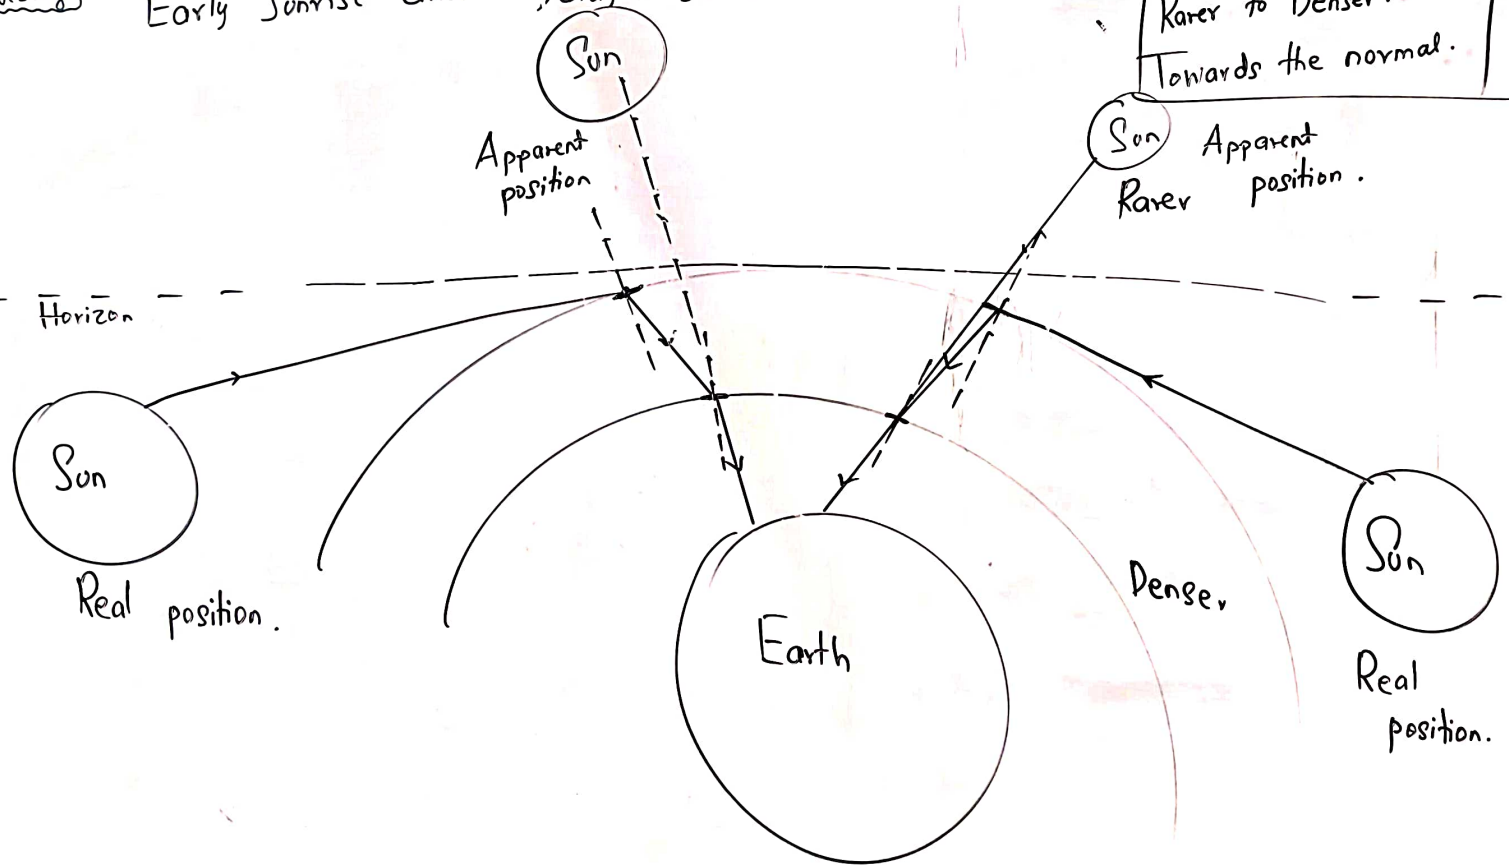 Early Sunrise
Rarer to Denser
Towards the normal.
Sun
Apparent
position
Sun
Apparent
position.
Rarer
Horizon
Sun
Real position.
Earth
Denser
Sun
Real
position.